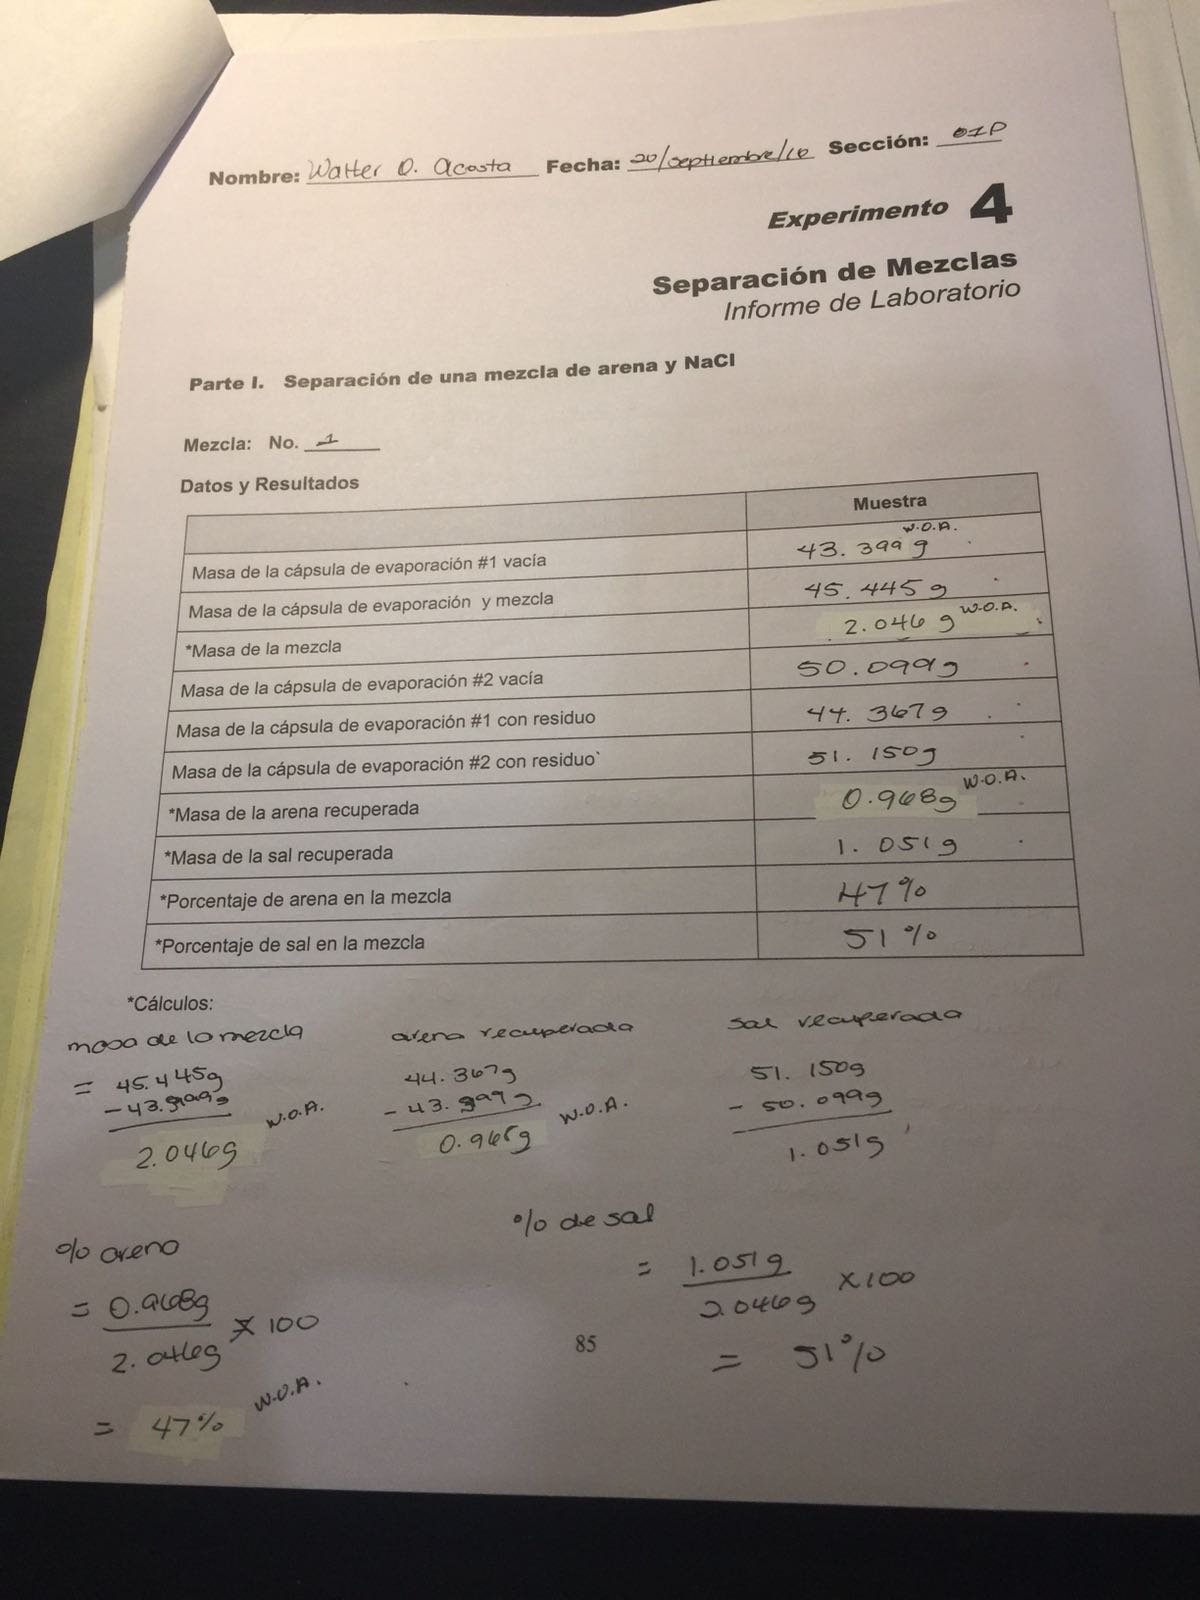 Nombre: Walter O. Acosta Fecha: 20/septiembre/16 Sección: 01P
Experimento 4
Separación de Mezclas
Informe de Laboratorio
Parte I. Separación de una mezcla de arena y NaCl
Mezcla: No. 1
Datos y Resultados
Muestra
W.O.A.
Masa de la cápsula de evaporación #1 vacía 43.399 g
Masa de la cápsula de evaporación y mezcla 45.445 g
*Masa de la mezcla 2.046 g W.O.A.
Masa de la cápsula de evaporación #2 vacía 50.099g
Masa de la cápsula de evaporación #1 con residuo 44.367g
Masa de la cápsula de evaporación #2 con residuo` 51.150g
*Masa de la arena recuperada 0.968g W.O.A.
*Masa de la sal recuperada 1.051g
*Porcentaje de arena en la mezcla 47%
*Porcentaje de sal en la mezcla 51%
*Cálculos:
masa de la mezcla arena recuperada sal recuperada
= 45.445g 44.367g 51.150g
- 43.399g - 43.399g - 50.099g
W.O.A. W.O.A.
2.046g 0.968g 1.051g
% arena % de sal
= 0.968g = 1.051g
x 100 x 100
2.046g 2.046g
85
= 47% W.O.A. = 51%